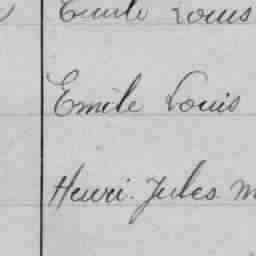 Emile Louis
Emile Louis
Henri. Jules